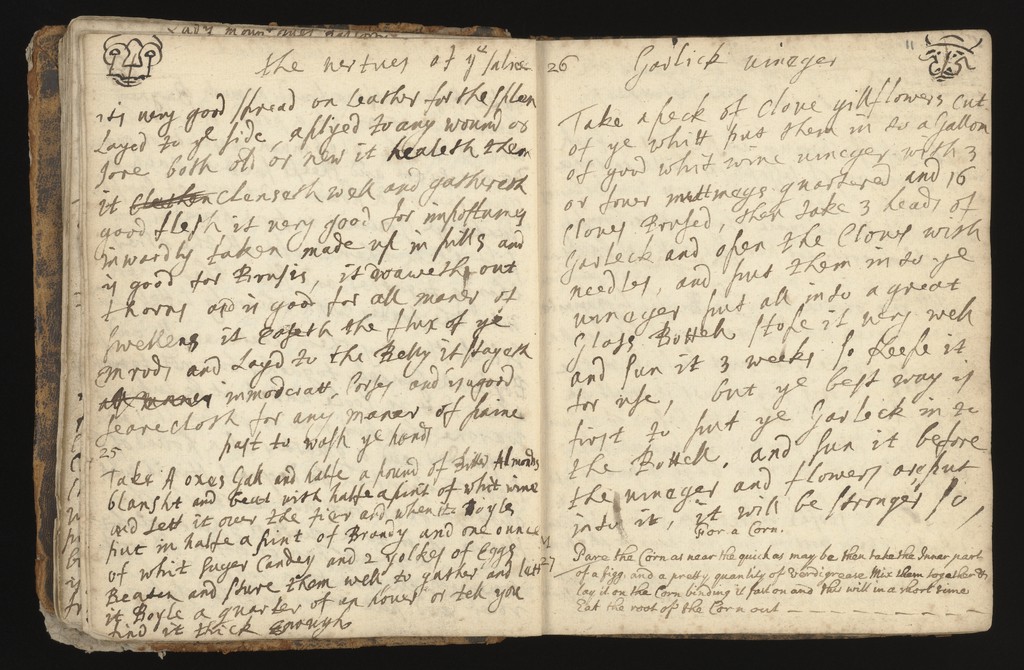 the vertues of ye salve
its very good spread on Leather for the spleen
Layed to ye side, aplyed to any wound or
sore both old or new it healeth them
it Clenseth well and gathereth
good flesh it very good for impostumes
inwardly taken made up in pills and
is good for Bruses, it draweth out
thorns and is good for all maner of
swellens it Easeth the flux of ye
Emrods and Layd to the Belly it stayeth
all maner immoderatt Corses and is a good
seare cloth for any maner of paine
past to wash ye hands
25
Take A oxes Gall and halfe a pound of bitter Almonds
blansht and beat with halfe a pint of whit wine
and Lett it over the fier and when it Boyls
put in halfe a pint of Brandy and one ounce
of whit suger Candey and 2 yolkes of Eggs
Beaten and sture them well to gather and lett
it Boyle a quarter of an hower or tell you
find it thick Enough
11
26
Garlick vineger
Take a peck of Clove gillflowers cut
of ye whitt put them in to a Gallon
of good whit wine vineger with 3
or fower nuttmegs quartered and 16
cloves Brused, then take 3 heads of
Garleck and open the Cloves with
needles, and put them in to ye
vineger put all into a great
Glass Bottell stope it very well
and sun it 3 weeks so keepe it
for use, but ye best way is
first to put ye Garleck in to
the Bottell, and sun it before
the vineger and flowers are put
into it, it will be stronger so,
For a Corn.
27
Pare the Corn as near the quick as may be then take the Inner part
of a figg and a pretty quantity of Verdigrease Mix them together &
lay it on the Corn binding it fast on and this will in a short time
Eat the root of the Corn out